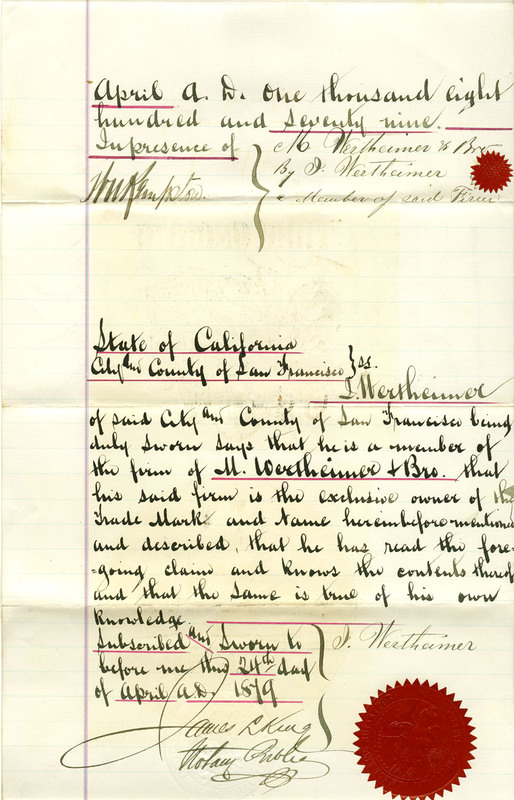 April A. D. One thousand eight
hundred and Seventy nine.
In presence of
M Wertheimer & Bro
By I. Wertheimer
a Member of said Firm
Wm Kempton.
State of California
City and County of San Francisco } ss.
I. Wertheimer
of said City and County of San Francisco being
duly Sworn Says that he is a member of
the firm of M. Wertheimer & Bro. that
his said firm is the exclusive owner of the
Trade Mark and Name hereinbefore mentioned
and described, that he has read the fore-
-going claim and knows the contents thereof
and that the Same is true of his own
Knowledge.
Subscribed and Sworn to
before me this 24th day
of April A.D. 1879
I. Wertheimer
James L King
Notary Public